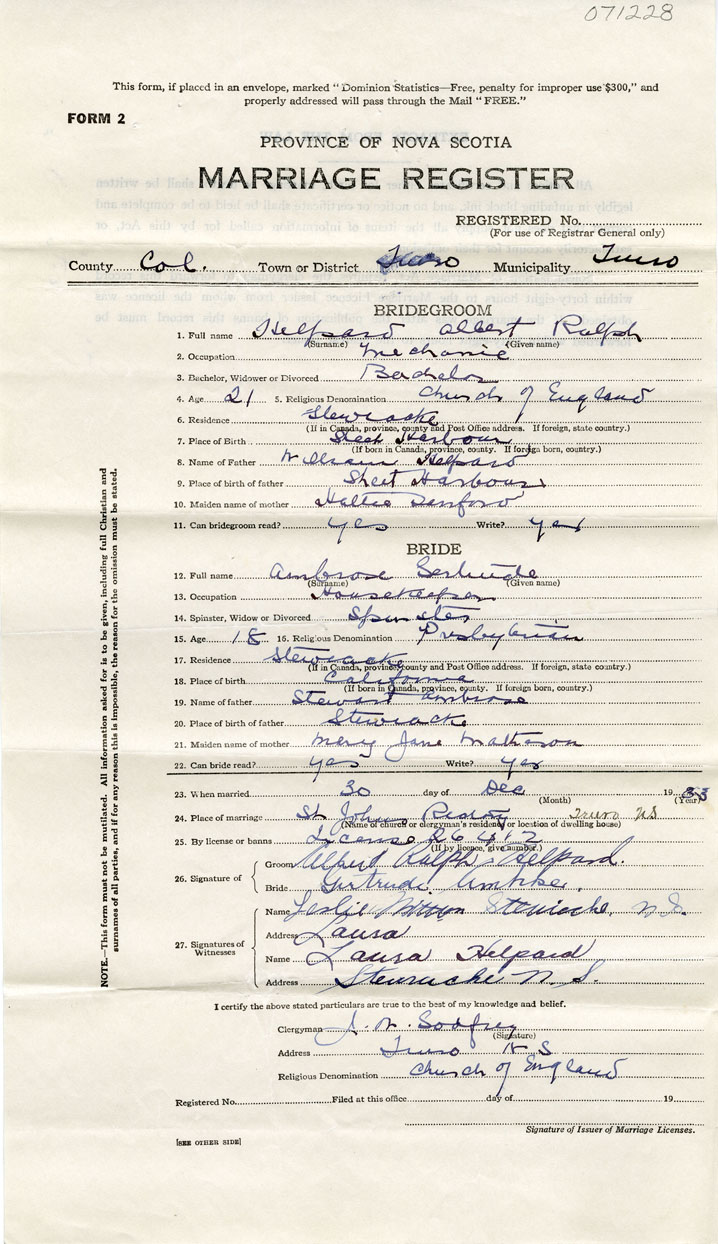 071228
This form, if placed in an envelope, marked "Dominion Statistics—Free, penalty for improper use $300," and
properly addressed will pass through the Mail "FREE."
FORM 2
PROVINCE OF NOVA SCOTIA
MARRIAGE REGISTER
REGISTERED No.
(For use of Registrar General only)
County Col. Town or District Truro Municipality Truro
BRIDEGROOM
1. Full name Helpard Albert Ralph
(Surname) (Given name)
2. Occupation Mechanic
3. Bachelor, Widower or Divorced Bachelor
4. Age 21 5. Religious Denomination Church of England
6. Residence Stewiacke
(If in Canada, province, county and Post Office address. If foreign, state country.)
7. Place of Birth Sheet Harbour
(If born in Canada, province, county. If foreign born, country.)
8. Name of Father William Helpard
9. Place of birth of father Sheet Harbour
10. Maiden name of mother Hattie
11. Can bridegroom read? yes Write? yes
BRIDE
12. Full name Ambrose Gertrude
(Surname) (Given name)
13. Occupation Housekeeper
14. Spinster, Widow or Divorced Spinster
15. Age 18 16. Religious Denomination Presbyterian
17. Residence Stewiacke
(If in Canada, province, county and Post Office address. If foreign, state country.)
18. Place of birth California
(If born in Canada, province, county. If foreign born, country.)
19. Name of father Stewart Ambrose
20. Place of birth of father Stewiacke
21. Maiden name of mother Mary Jane Matheson
22. Can bride read? yes Write? yes
23. When married 30 day of Dec 1933
(Month) (Year)
24. Place of marriage St Johns Rectory Truro NS
(Name of church or clergyman's residence or location of dwelling house)
25. By license or banns License
(If by licence, give number.)
26. Signature of
Groom Albert Ralph Helpard.
Bride Gertrude
27. Signatures of Witnesses
Name Leslie Stewiacke, N.S.
Address Laura
Name Laura Helpard
Address Stewiacke N.S.
I certify the above stated particulars are true to the best of my knowledge and belief.
Clergyman Godfrey
(Signature)
Address Truro N S
Religious Denomination Church of England
Registered No. Filed at this office day of 19
Signature of Issuer of Marriage Licenses.
[SEE OTHER SIDE]
NOTE.—This form must not be mutilated. All information asked for is to be given, including full Christian and
surnames of all parties, and if for any reason this is impossible, the reason for the omission must be stated.